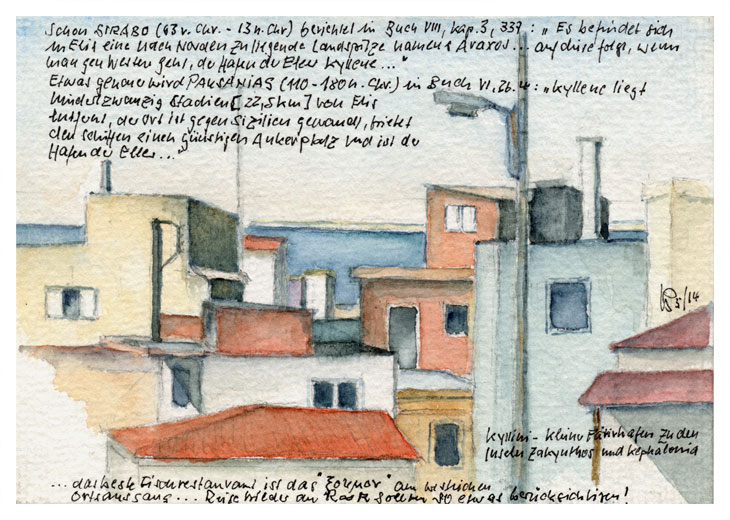 Schon STRABO (63 v. Chr. - 13 n. Chr) berichtet in Buch VIII, Kap. 3, 337: „Es befindet sich
in Elis eine nach Norden zu liegende Landspitze namens Araxos... auf diese folgt, wenn
man gen Westen geht, der Hafen der Eleer Kyllene..."
Etwas genauer wird PAUSANIAS (110 - 180 n. Chr.) in Buch VI, 26. 4: „Kyllene liegt
hundertzwanzig Stadien [22,5 km] von Elis
entfernt, der Ort ist gegen Sizilien gewandt, bietet
den Schiffen einen günstigen Ankerplatz und ist der
Hafen der Eleer..."
5/14
Kyllini - kleiner Fährhafen zu den
Inseln Zakynthos und Kephalonia
... das beste Fischrestaurant ist das " " am westlichen
Ortsausgang... Reise wieder der Küste sollten so etwas berücksichtigen!